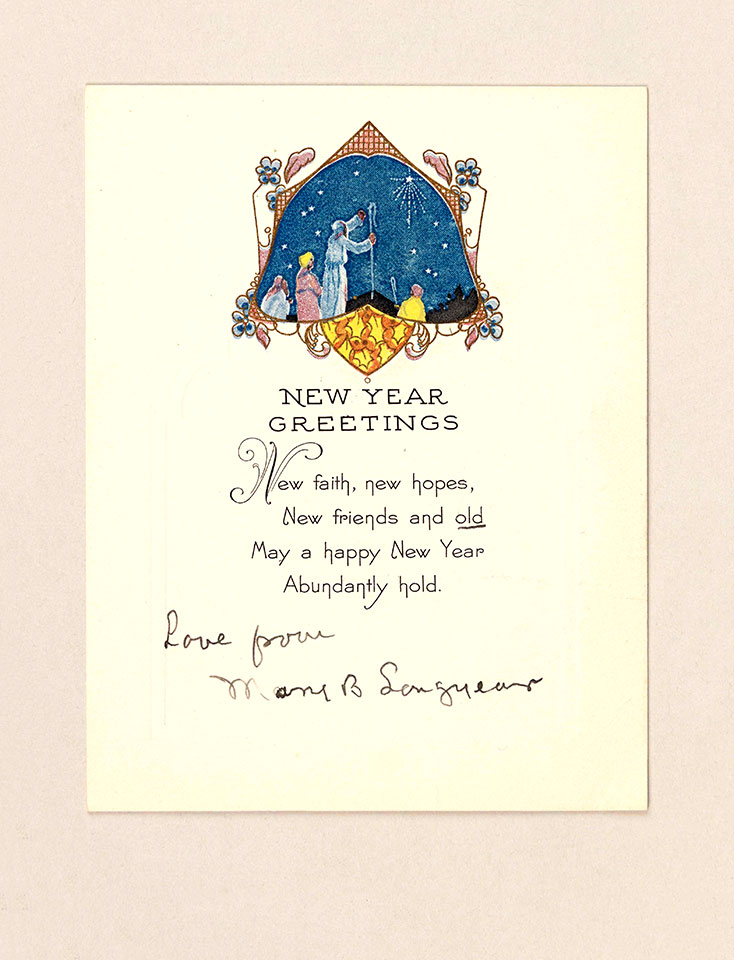 NEW YEAR
GREETINGS
New faith, new hopes,
New friends and old
May a happy New Year
Abundantly hold.
Love from
Mary B Longyear